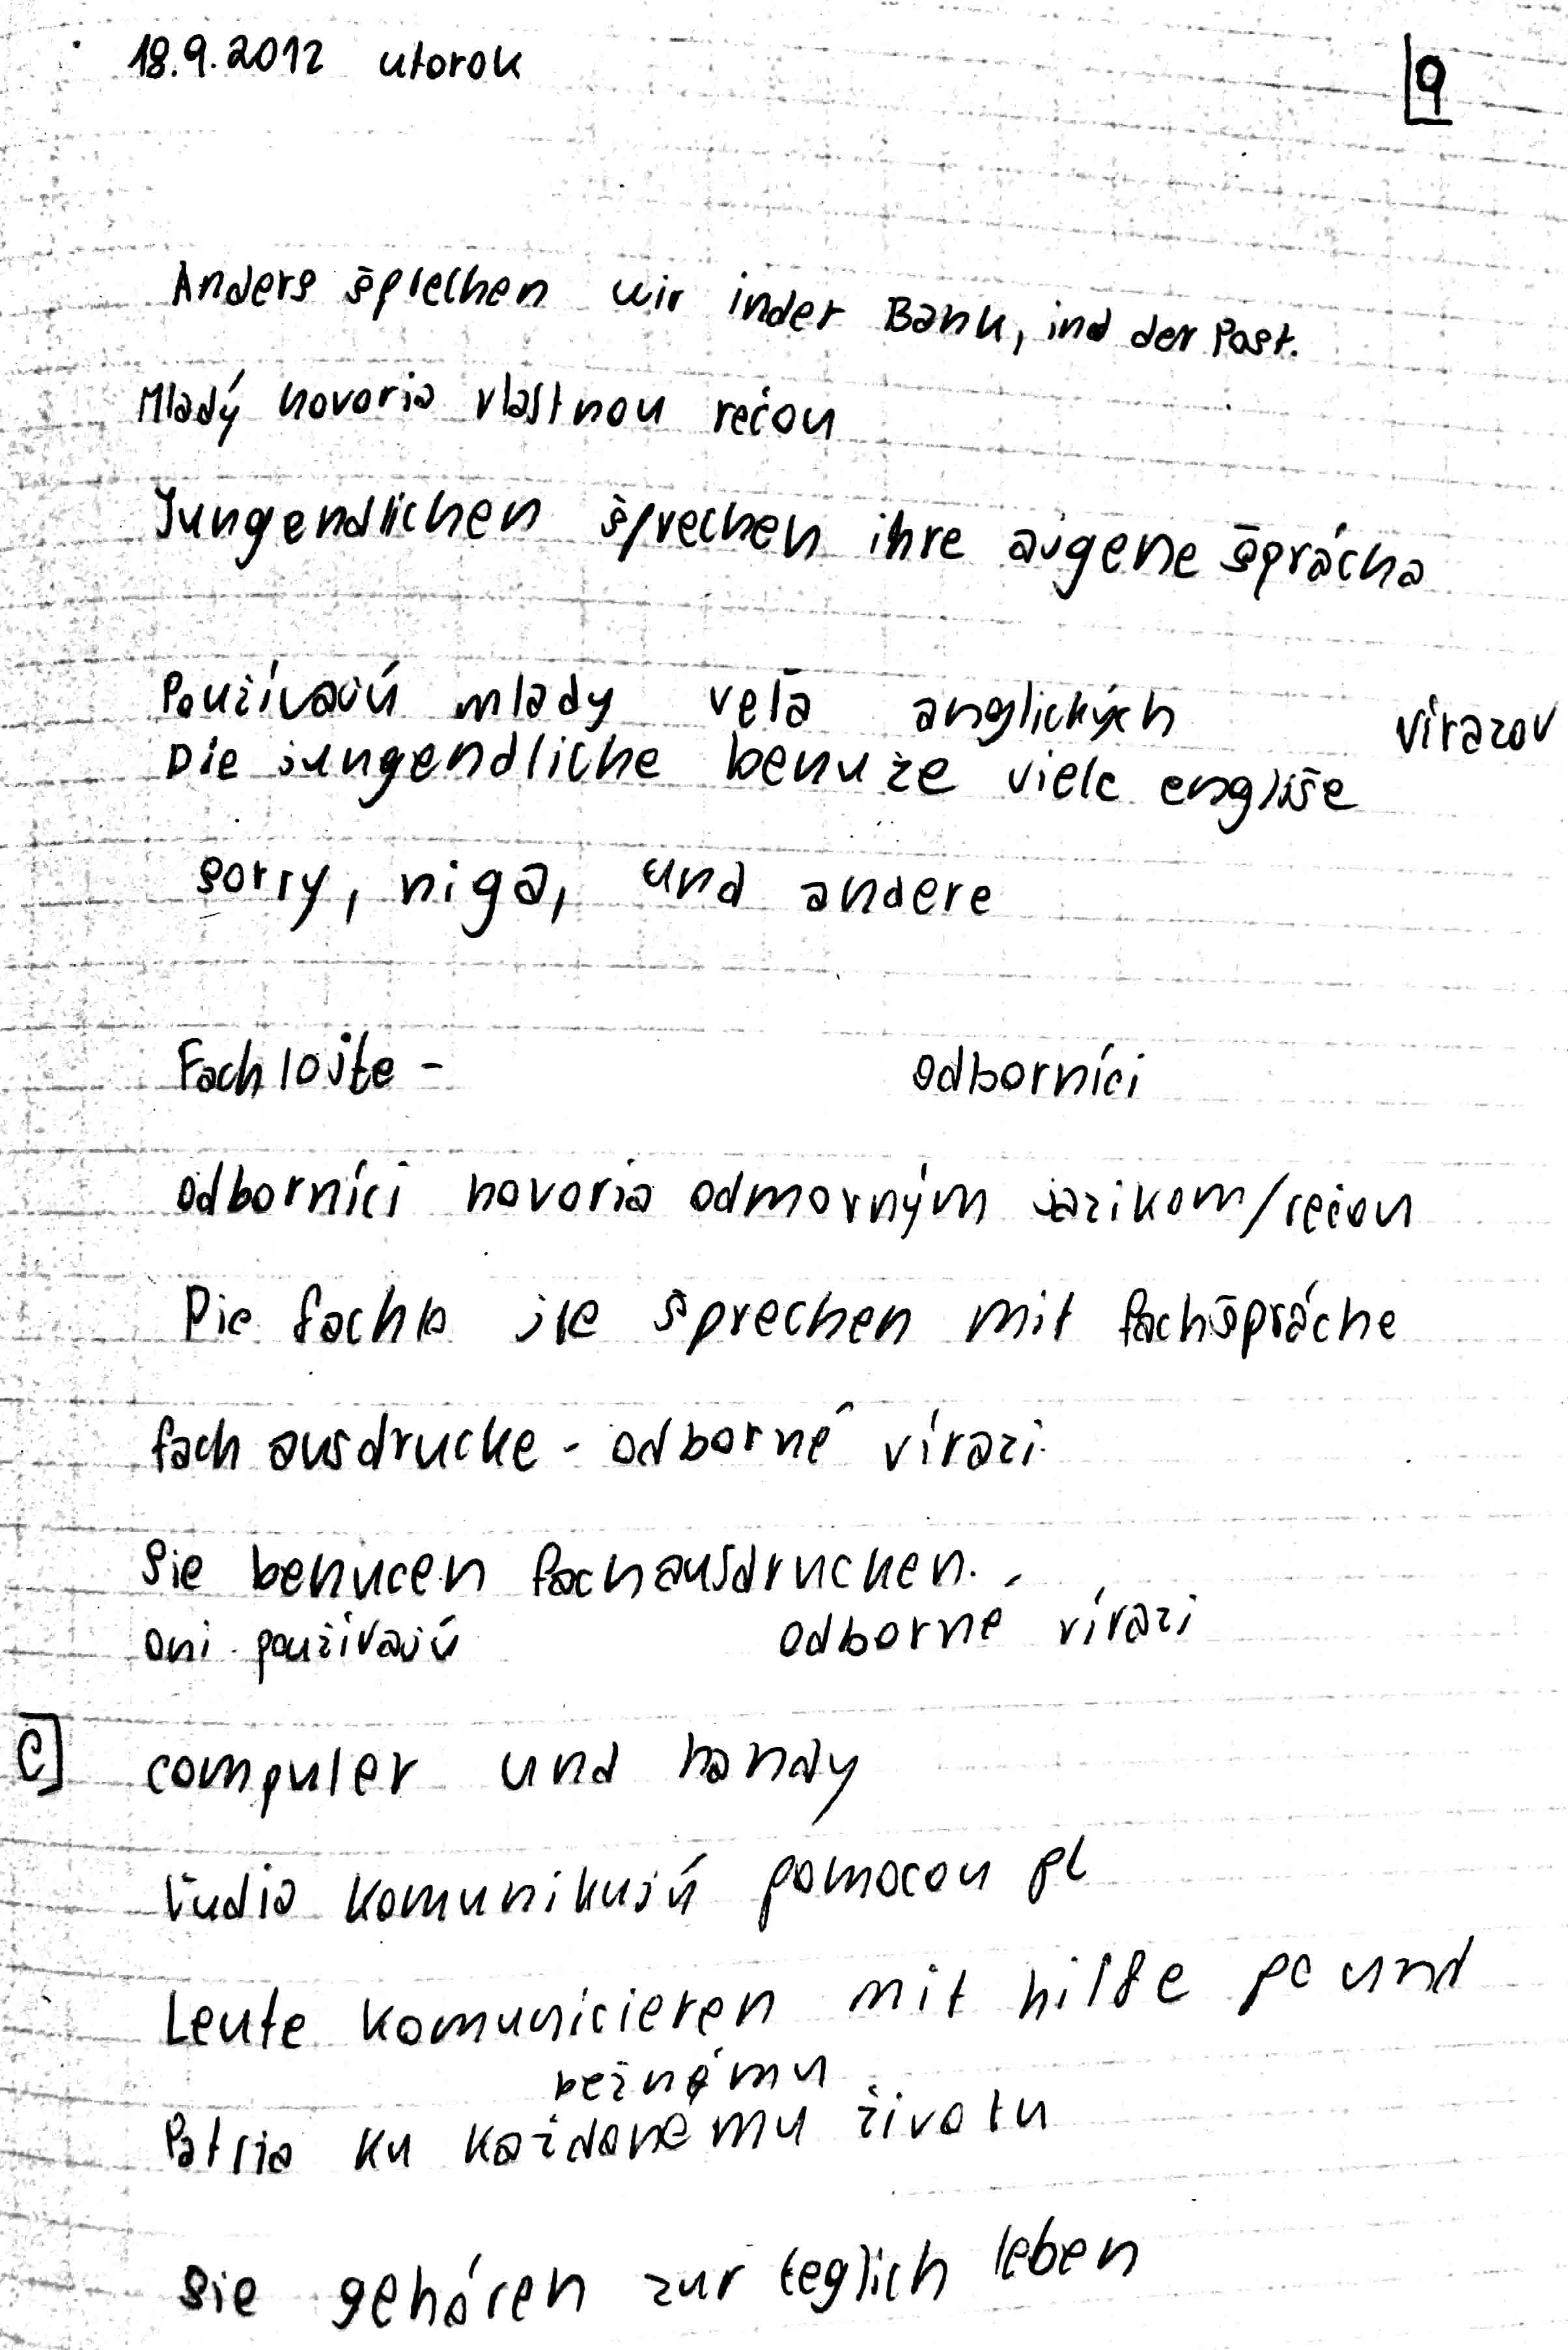 18.9.2012 utorok
9
Anders šprechen wir inder Bank, ind der Post.
Mladý hovoria vlastnou rečou
Jungendlichen šprechen ihre aigene šprácha
Používajú mlady veľa anglických výrazov
Die jungendliche benuže viele engliše
sorry, niga, und andere
Fachlojte - odborníci
odborníci hovoria odmorným jazikom/rečou
Die fachle šprechen mit fachšpráche
fach ausdrucke - odborné vírazi
Sie benucen fachausdrucken.
oni používajú odborné vírazi
C) computer und handy
Ľudia komunikujú pomocou pc
Leute komunicieren mit hilfe pc und
bežnému
Patria ku každanemu životu
Sie gehóren zur teglich leben